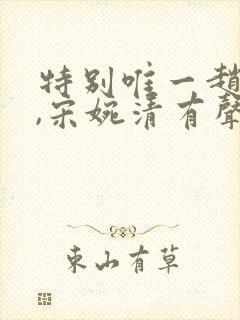 特别唯一趙
,宋婉清有聲
東山有草